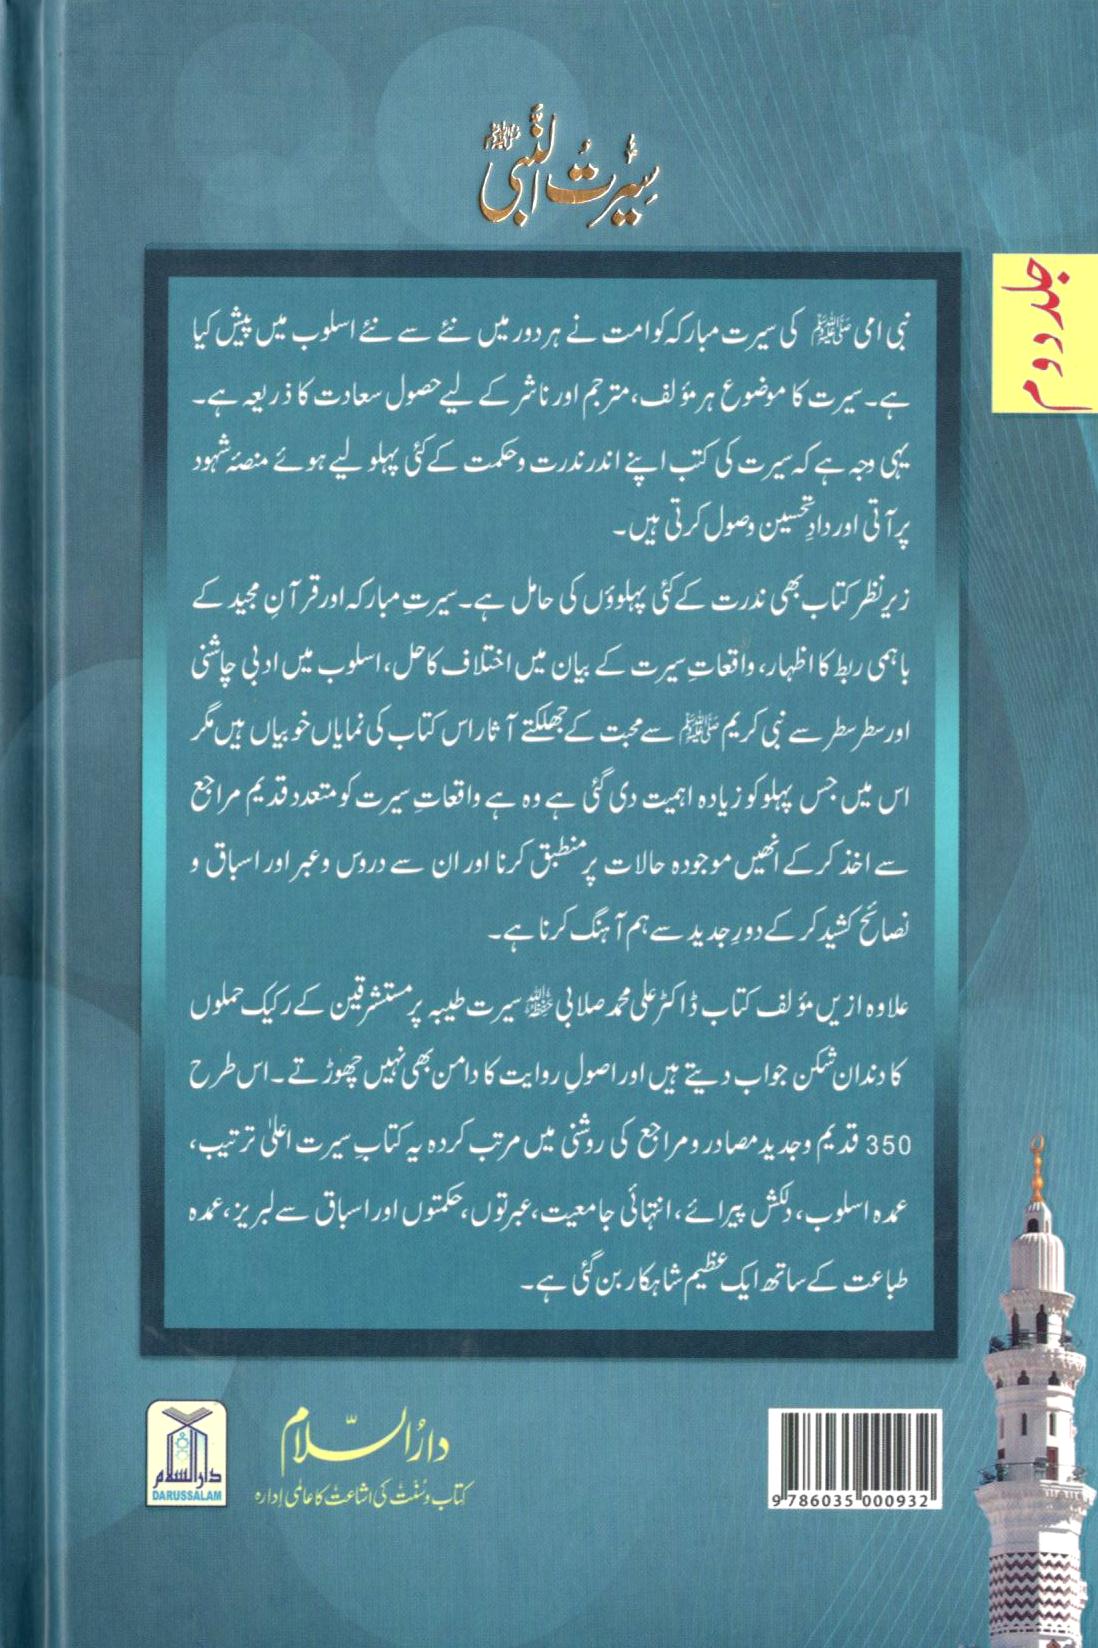 سِیرتُ النَّبی ﷺ
جلد دوم
نبی امی ﷺ کی سیرت مبارکہ کو امت نے ہر دور میں نئے سے نئے اسلوب میں پیش کیا
ہے۔ سیرت کا موضوع ہر مؤلف، مترجم اور ناشر کے لیے حصول سعادت کا ذریعہ ہے۔
یہی وجہ ہے کہ سیرت کی کتب اپنے اندر ندرت و حکمت کے کئی پہلو لیے ہوئے منصۂ شہود
پر آتی اور دادِ تحسین وصول کرتی ہیں۔
زیر نظر کتاب بھی ندرت کے کئی پہلوؤں کی حامل ہے۔ سیرتِ مبارکہ اور قرآنِ مجید کے
باہمی ربط کا اظہار، واقعاتِ سیرت کے بیان میں اختلاف کا حل، اسلوب میں ادبی چاشنی
اور سطر سطر سے نبی کریم ﷺ سے محبت کے جھلکتے آثار اس کتاب کی نمایاں خوبیاں ہیں مگر
اس میں جس پہلو کو زیادہ اہمیت دی گئی ہے وہ ہے واقعاتِ سیرت کو متعدد قدیم مراجع
سے اخذ کر کے انھیں موجودہ حالات پر منطبق کرنا اور ان سے دروس و عبر اور اسباق و
نصائح کشید کر کے دورِ جدید سے ہم آہنگ کرنا ہے۔
علاوہ ازیں مؤلف کتاب ڈاکٹر علی محمد صلابی حفظہ اللہ سیرت طیبہ پر مستشرقین کے رکیک حملوں
کا دندان شکن جواب دیتے ہیں اور اصولِ روایت کا دامن بھی نہیں چھوڑتے۔ اس طرح
350 قدیم و جدید مصادر و مراجع کی روشنی میں مرتب کردہ یہ کتابِ سیرت اعلیٰ ترتیب،
عمدہ اسلوب، دلکش پیرائے، انتہائی جامعیت، عبرتوں، حکمتوں اور اسباق سے لبریز، عمدہ
طباعت کے ساتھ ایک عظیم شاہکار بن گئی ہے۔
دارُالسّلام
کتاب و سُنّت کی اشاعت کا عالمی ادارہ
دارالسلام
DARUSSALAM
9 786035 000932